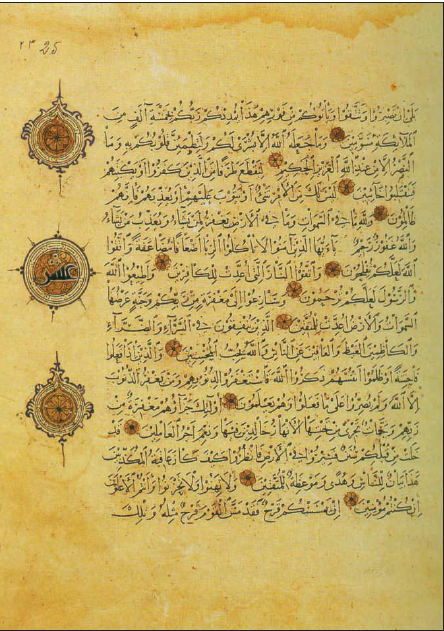 بلى إن تصبروا وتتقوا ويأتوكم من فورهم هذا يمددكم ربكم بخمسة آلاف من
الملائكة مسومين وما جعله الله إلا بشرى لكم ولتطمئن قلوبكم به وما
النصر إلا من عند الله العزيز الحكيم ليقطع طرفا من الذين كفروا أو يكبتهم
فينقلبوا خائبين ليس لك من الأمر شيء أو يتوب عليهم أو يعذبهم فإنهم
ظالمون ولله ما في السموات وما في الأرض يغفر لمن يشاء ويعذب من يشاء
والله غفور رحيم يا أيها الذين آمنوا لا تأكلوا الربا أضعافا مضاعفة واتقوا
الله لعلكم تفلحون واتقوا النار التي أعدت للكافرين وأطيعوا الله
والرسول لعلكم ترحمون وسارعوا إلى مغفرة من ربكم وجنة عرضها
السموات والأرض أعدت للمتقين الذين ينفقون في السراء والضراء
والكاظمين الغيظ والعافين عن الناس والله يحب المحسنين والذين إذا فعلوا
فاحشة أو ظلموا أنفسهم ذكروا الله فاستغفروا لذنوبهم ومن يغفر الذنوب
إلا الله ولم يصروا على ما فعلوا وهم يعلمون أولئك جزاؤهم مغفرة من
ربهم وجنات تجري من تحتها الأنهار خالدين فيها ونعم أجر العاملين قد
خلت من قبلكم سنن فسيروا في الأرض فانظروا كيف كان عاقبة المكذبين
هذا بيان للناس وهدى وموعظة للمتقين ولا تهنوا ولا تحزنوا وأنتم الأعلون
إن كنتم مؤمنين إن يمسسكم قرح فقد مس القوم قرح مثله وتلك
عشر